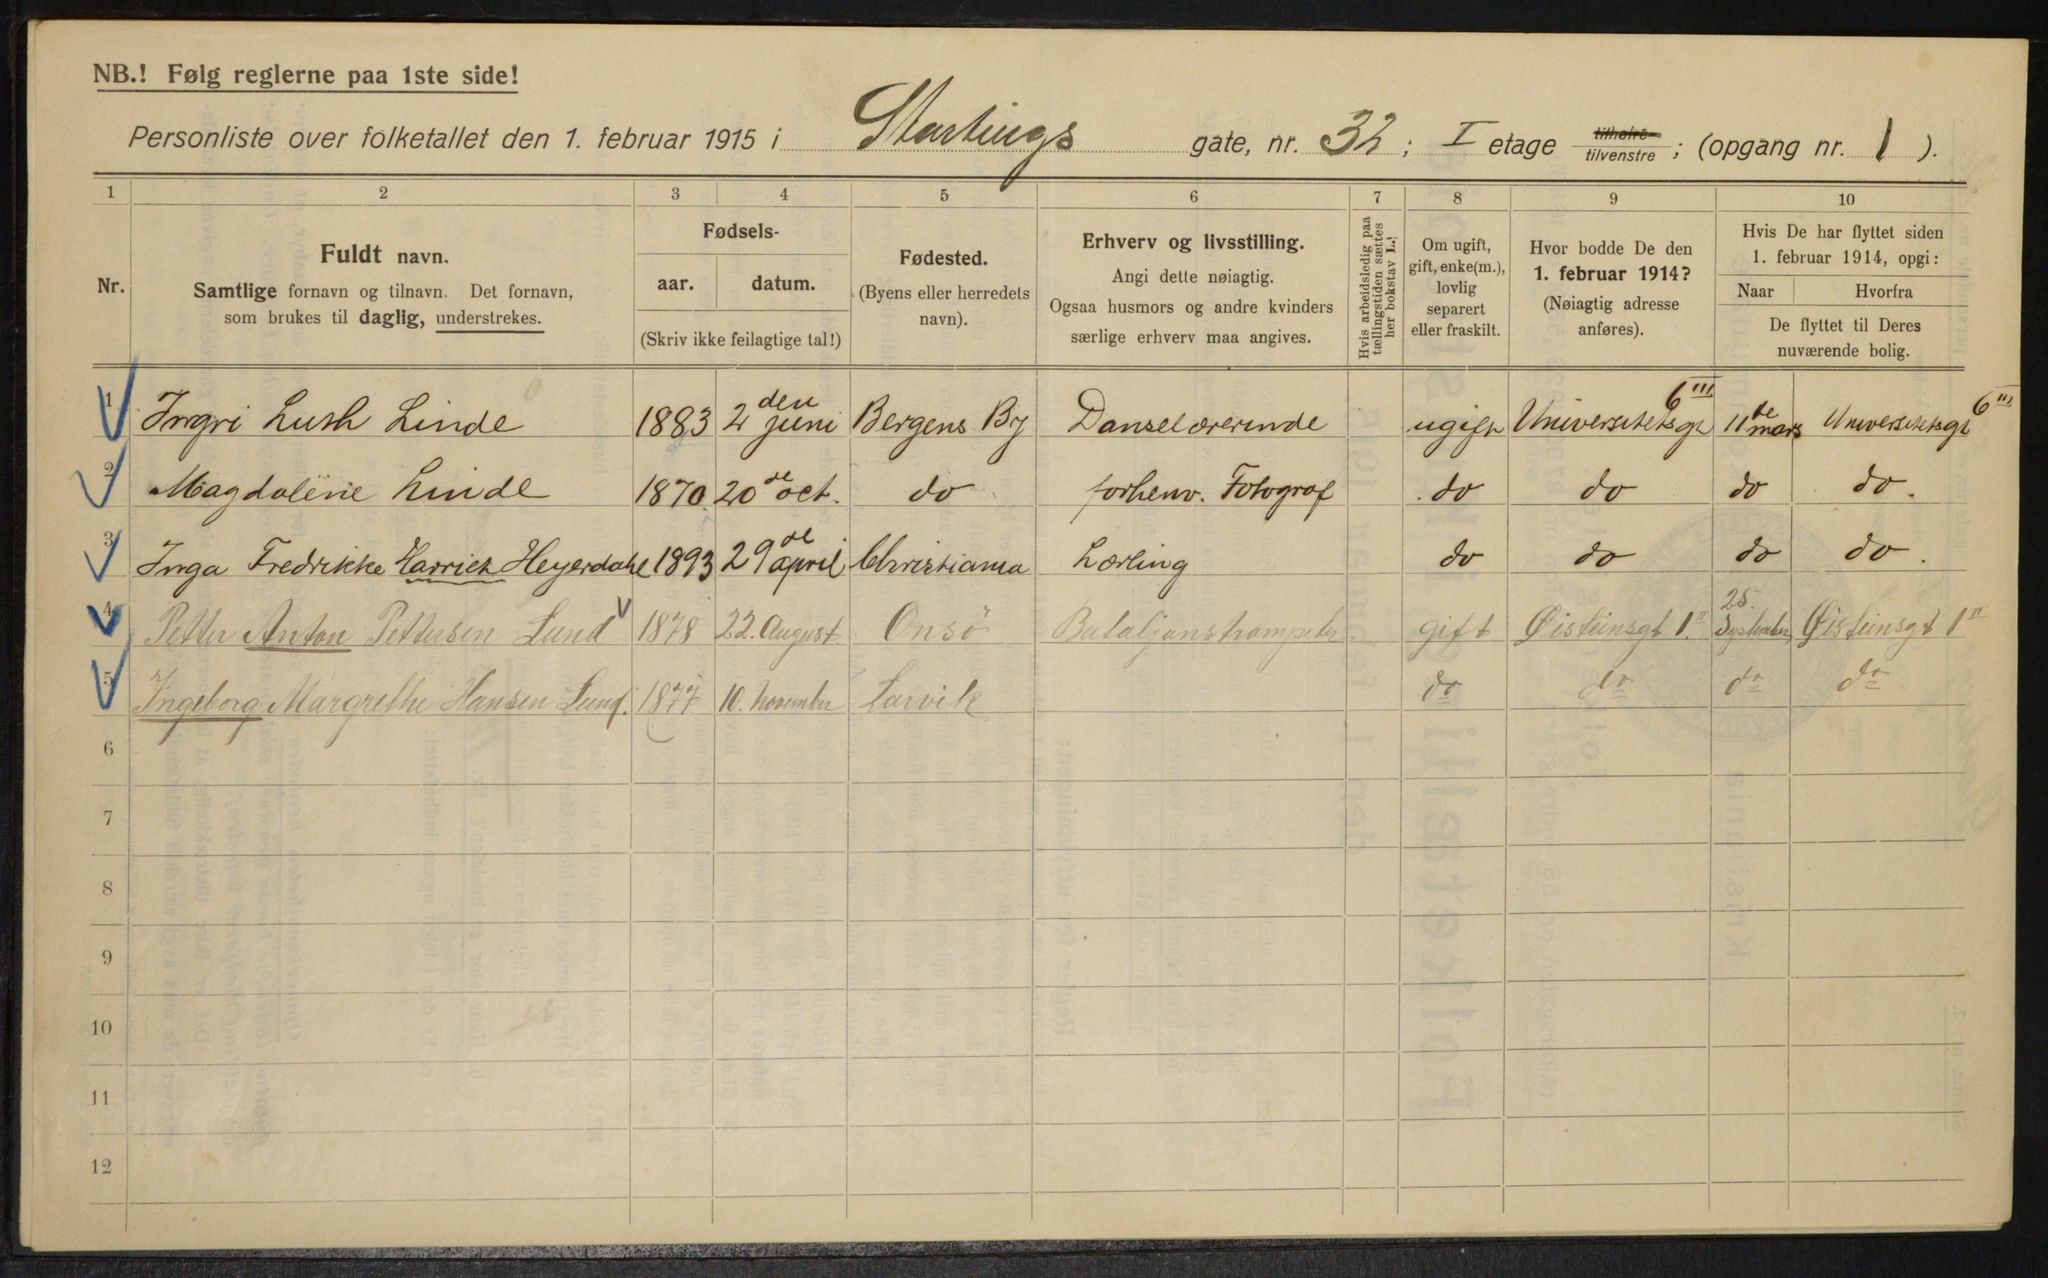 NB.! Følg reglerne paa 1ste side!
Personliste over folketallet den 1. februar 1915 i Stortings gate, nr. 32; I etage tilhøire tilvenstre; (opgang nr. 1).
1 2 3 4 5 6 7 8 9 10
Nr.
Fuldt navn.
Samtlige fornavn og tilnavn. Det fornavn,
som brukes til daglig, understrekes.
Fødsels-
aar. datum.
(Skriv ikke feilagtige tal!)
Fødested.
(Byens eller herredets
navn).
Erhverv og livsstilling.
Angi dette nøiagtig.
Ogsaa husmors og andre kvinders
særlige erhverv maa angives.
Hvis arbeidsledig paa
tællingstiden sættes
her bokstav L.!
Om ugift,
gift, enke(m.),
lovlig
separert
eller fraskilt.
Hvor bodde De den
1. februar 1914?
(Nøiagtig adresse
anføres).
Hvis De har flyttet siden
1. februar 1914, opgi:
Naar Hvorfra
De flyttet til Deres
nuværende bolig.
1 Ingri Lush Linde 1883 2den juni Bergens By Danselærerinde ugift Universitetsgt 6 III 11te mars Universitetsgt 6 III
2 Magdalene Linde 1870. 20de oct. do forhenv. Fotograf do do do do.
3 Inga Fredrikke Harriet Heyerdahl 1893 29de april Christiania Lærling do do do do.
4 Petter Anton Pettersen Lund 1878 22. August. Onsö Bataljonstrompeter gift Øisteinsgt 1.II 25. September, Øisteinsgt 1 II
5 Ingeborg Margrethe Hansen Lund. 1877 10. november Larvik do do do do
6
7
8
9
10
11
12